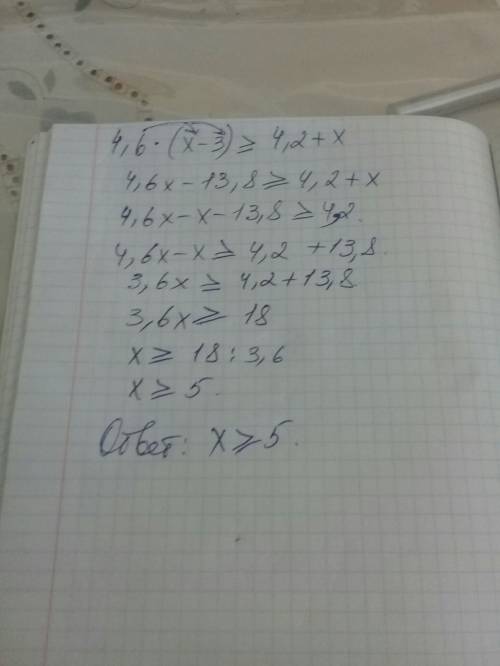 4,6·(x-3)≥4,2+x
4,6x-13,8≥4,2+x
4,6x-x-13,8≥4,2.
4,6x-x≥4,2 +13,8.
3,6x≥4,2+13,8
3,6x≥18
x≥18:3,6
x≥5.
Ответ: x≥5.